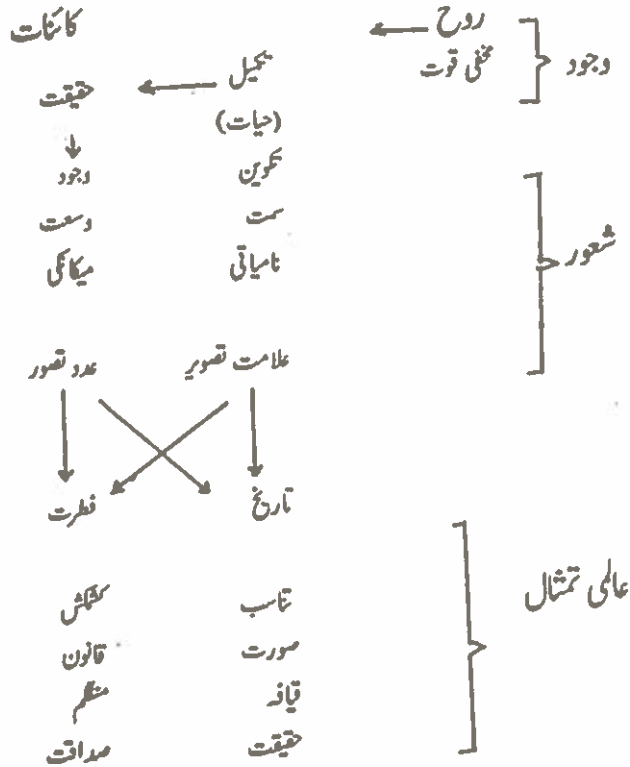 روح کائنات
وجود
مخفی قوت
تکمیل حقیقت
(حیات)
تکوین وجود
سمت وسعت
شعور
نامیاتی میکانکی
علامت تصویر عدد تصور
تاریخ فطرت
عالمی تمثال
تناسب کشمکش
صورت قانون
قیافہ منظم
حقیقت صداقت